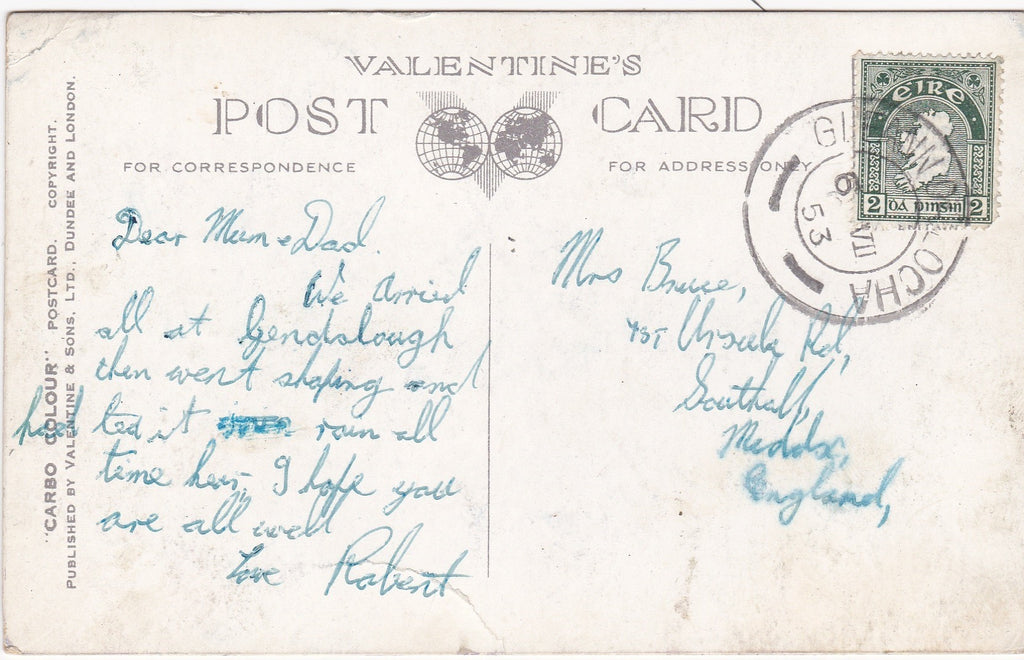 VALENTINE'S
POST CARD
FOR CORRESPONDENCE
FOR ADDRESS ONLY
"CARBO COLOUR" POSTCARD. COPYRIGHT.
PUBLISHED BY VALENTINE & SONS, LTD., DUNDEE AND LONDON.
Dear Mum & Dad.
We arried
all at Gendalough
then went shoping and
had tea it rain all
time hear, I hope you
are all well
love Robert
Mrs Bruce,
Ursula Rd,
Southall,
Middx,
England,
éire
2 2
6 VII
53
LOCHA